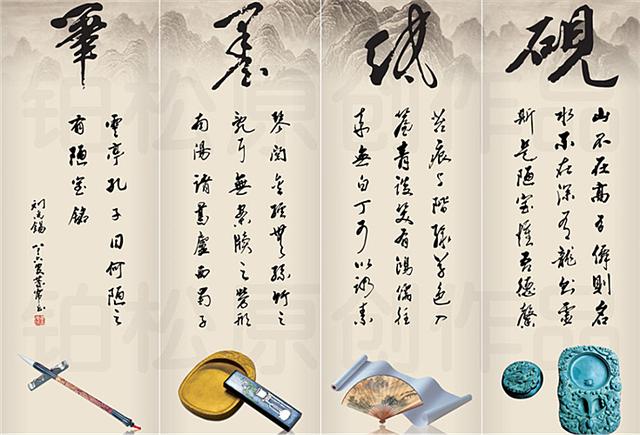 硯
山不在高有僊則名
水不在深有龍則靈
斯是陋室惟吾德馨
紙
苔痕上階綠草色入
簾青談笑有鴻儒往
來無白丁可以調素
墨
琴閱金經無絲竹之
亂耳無案牘之勞形
南陽諸葛廬西蜀子
筆
雲亭孔子曰何陋之
有陋室銘
刘禹锡
铂松原创作品
铂松原创作品